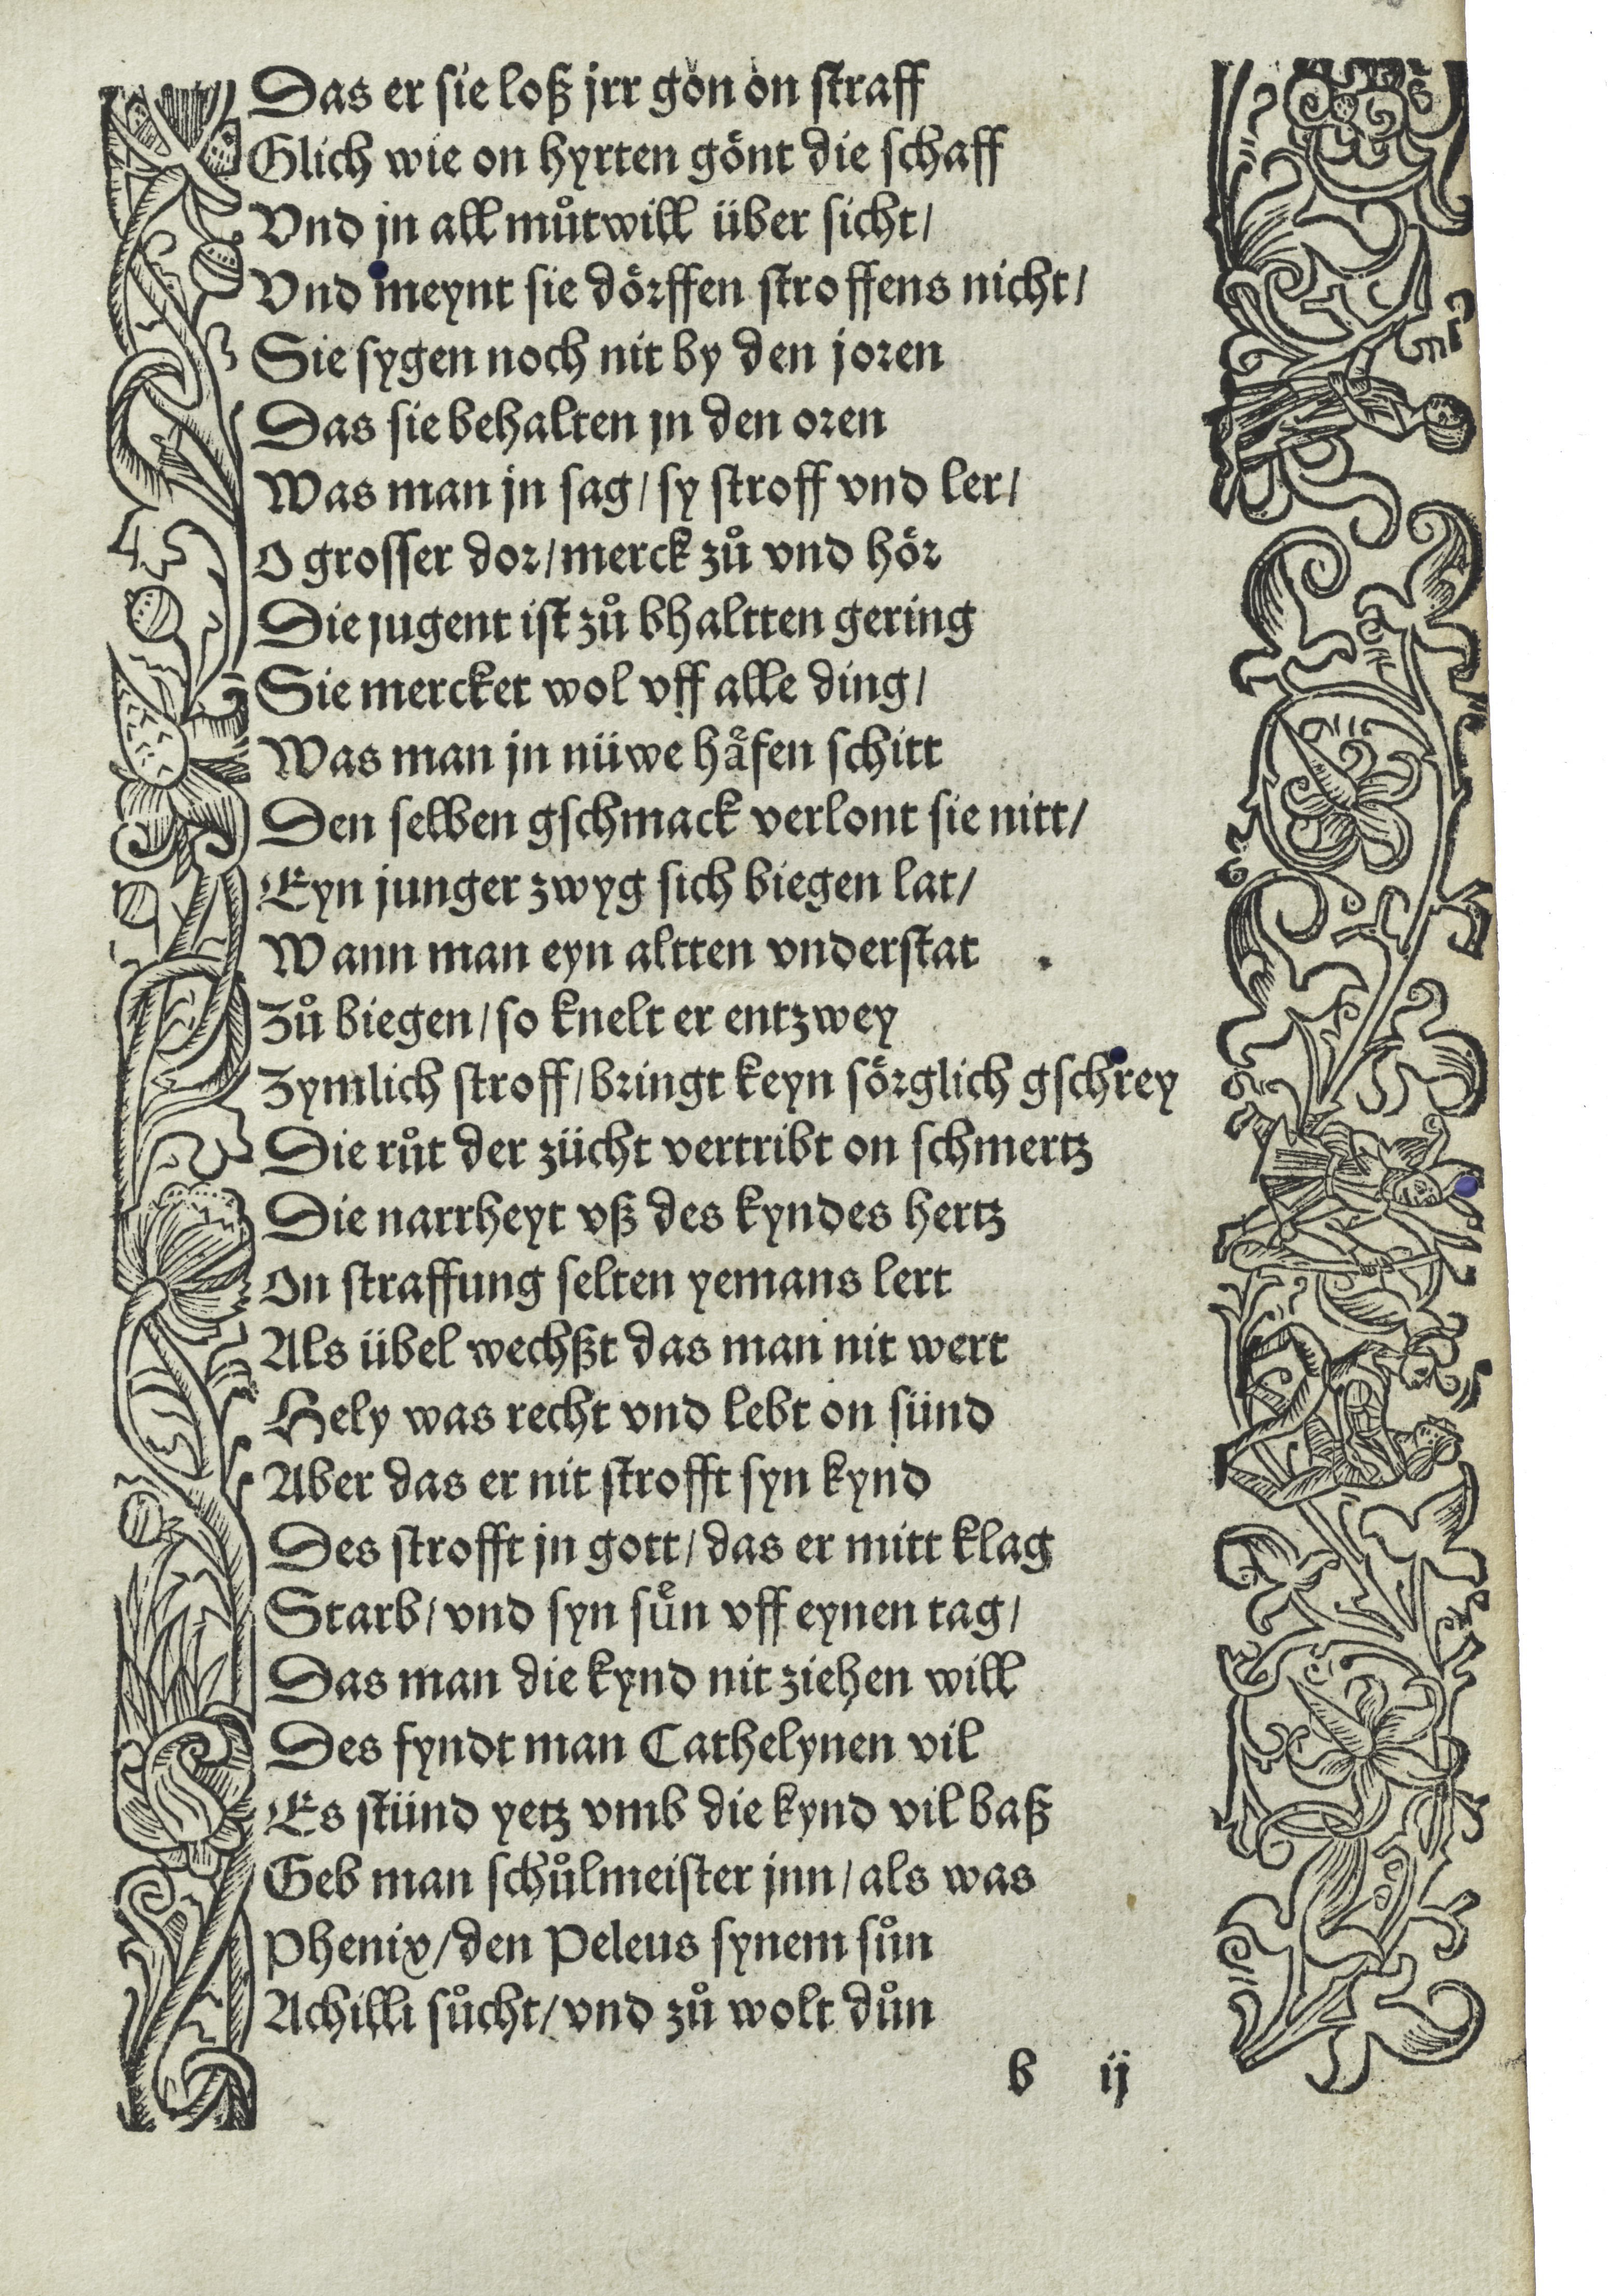 Das er sie loß jrr gon on straff
Glich wie on hyrten gönt die schaff
Vnd jn all můtwill über sicht/
Vnd meynt sie dörffen stroffens nicht/
Sie sygen noch nit by den joren
Das sie behalten jn den oren
Was man jn sag/ sy stroff vnd ler/
O grosser dor/ merck zů vnd hör
Die jugent ist zů bhaltten gering
Sie mercket wol vff alle ding/
Was man jn nüwe häfen schitt
Den selben gschmack verlont sie nitt/
Eyn junger zwyg sich biegen lat/
Wann man eyn altten vnderstat
Zů biegen/ so knelt er entzwey
Zymlich stroff/ bringt keyn sörglich gschrey
Die růt der zücht vertribt on schmertz
Die narrheyt vß des kyndes hertz
On straffung selten yemans lert
Als übel wechßt das man nit wert
Hely was recht vnd lebt on sünd
Aber das er nit strofft syn kynd
Des strofft jn gott/ das er mitt klag
Starb/ vnd syn suͤn vff eynen tag/
Das man die kynd nit ziehen will
Des fyndt man Cathelynen vil
Es stünd yetz vmb die kynd vil baß
Geb man schůlmeister jnn/ als was
Phenix/ den Peleus synem sůn
Achilli sůcht/ vnd zů wolt důn
b ij